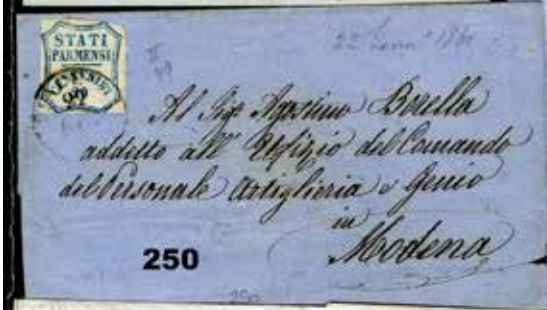 STATI
PARMENSI
22 Genn° 1860
Al Sig Agostino Borella
addetto all' Uffizio del Comando
del Personale Artiglieria e Genio
in
Modena
250
250